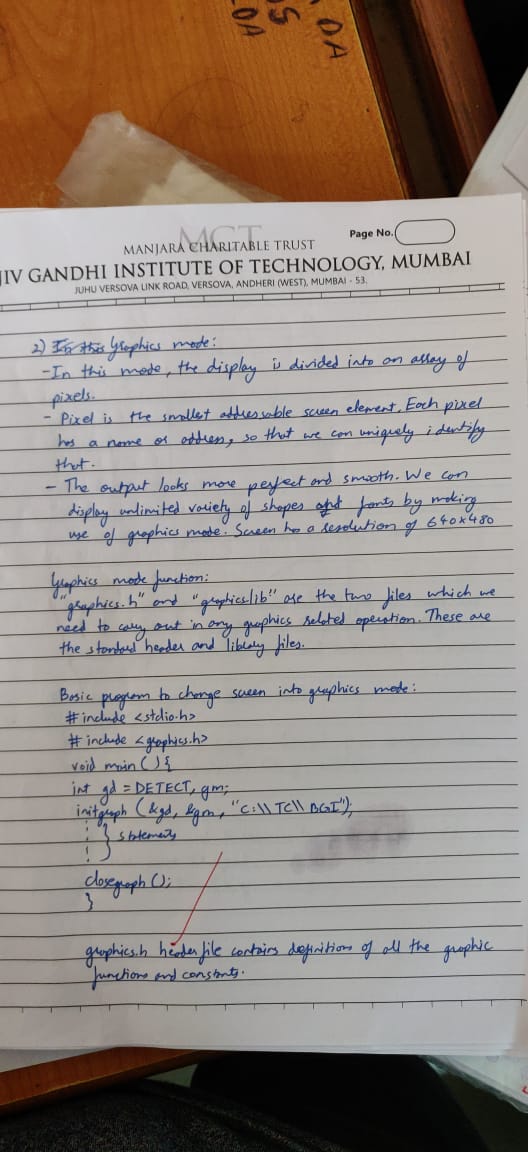 DA
OS
LDA
MCT
MANJARA CHARITABLE TRUST
Page No.
JIV GANDHI INSTITUTE OF TECHNOLOGY, MUMBAI
JUHU VERSOVA LINK ROAD, VERSOVA, ANDHERI (WEST), MUMBAI - 53.
2) In this Graphics mode:
-In this mode, the display is divided into an array of
pixels.
- Pixel is the smallest addressable screen element. Each pixel
has a name or address, so that we can uniquely identify
that.
- The output looks more perfect and smooth. We can
display unlimited variety of shapes and fonts by making
use of graphics mode. Screen has a resolution of 640x480
Graphics mode function:
"graphics.h" and "graphics.lib" are the two files which we
need to carry out in any graphics related operation. These are
the standard header and library files.
Basic program to change screen into graphics mode:
#include <stdio.h>
#include <graphics.h>
void main(){
int gd = DETECT, gm;
initgraph (&gd, &gm, "C:\\TC\\BGI");
} statements
closegraph();
}
graphics.h header file contains definitions of all the graphic
functions and constants.